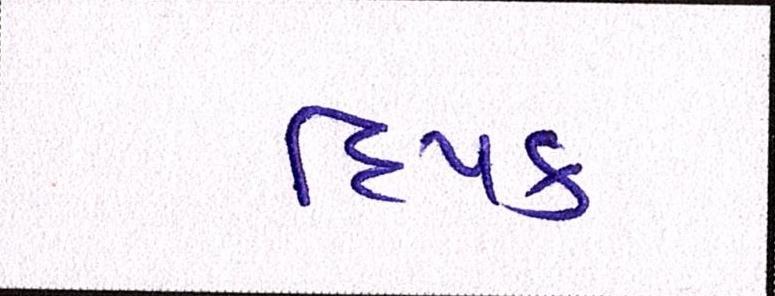 દિપક